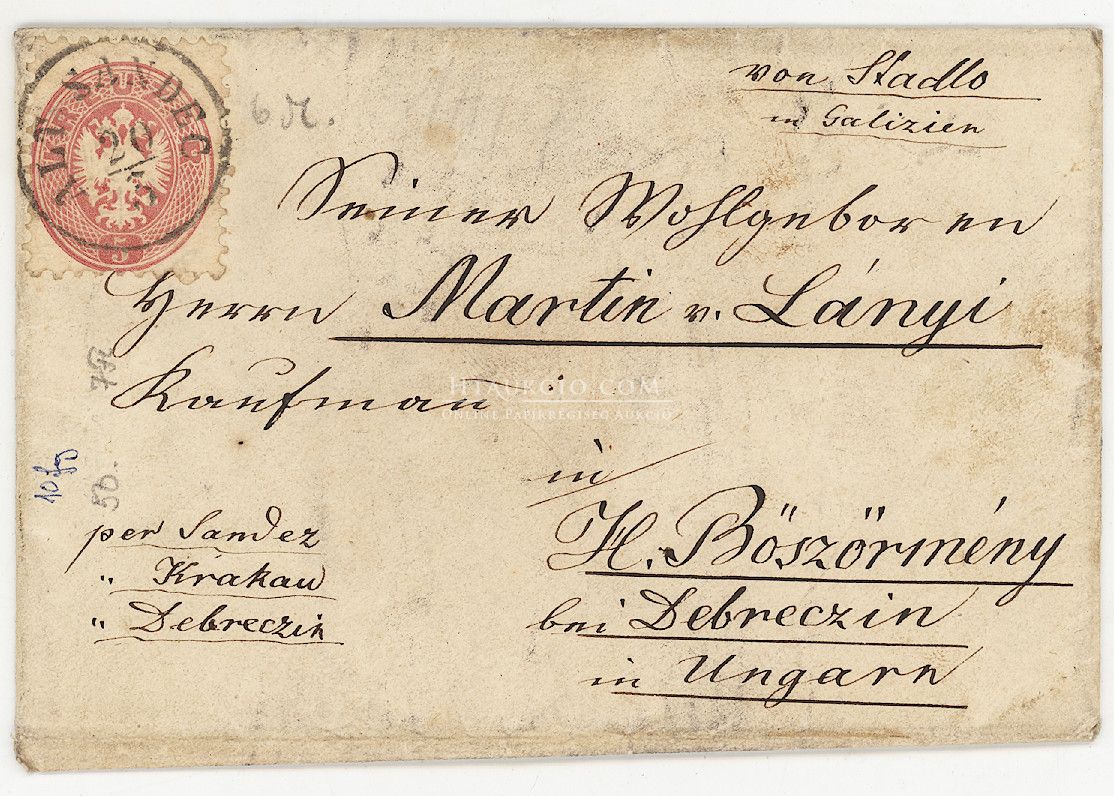 von Stadlo
in Galizien
ALT SANDEC
20/5
5
6 K.
Seiner Wohlgeboren
Herrn Martin v. Lányi
Kaufman
HTAUKCIO.COM
ONLINE PAPÍRRÉGISÉG AUKCIÓ
in
H. Böszörmény
bei Debreczin
in Ungarn
50.
per Sandez
" Krakau
" Debreczin